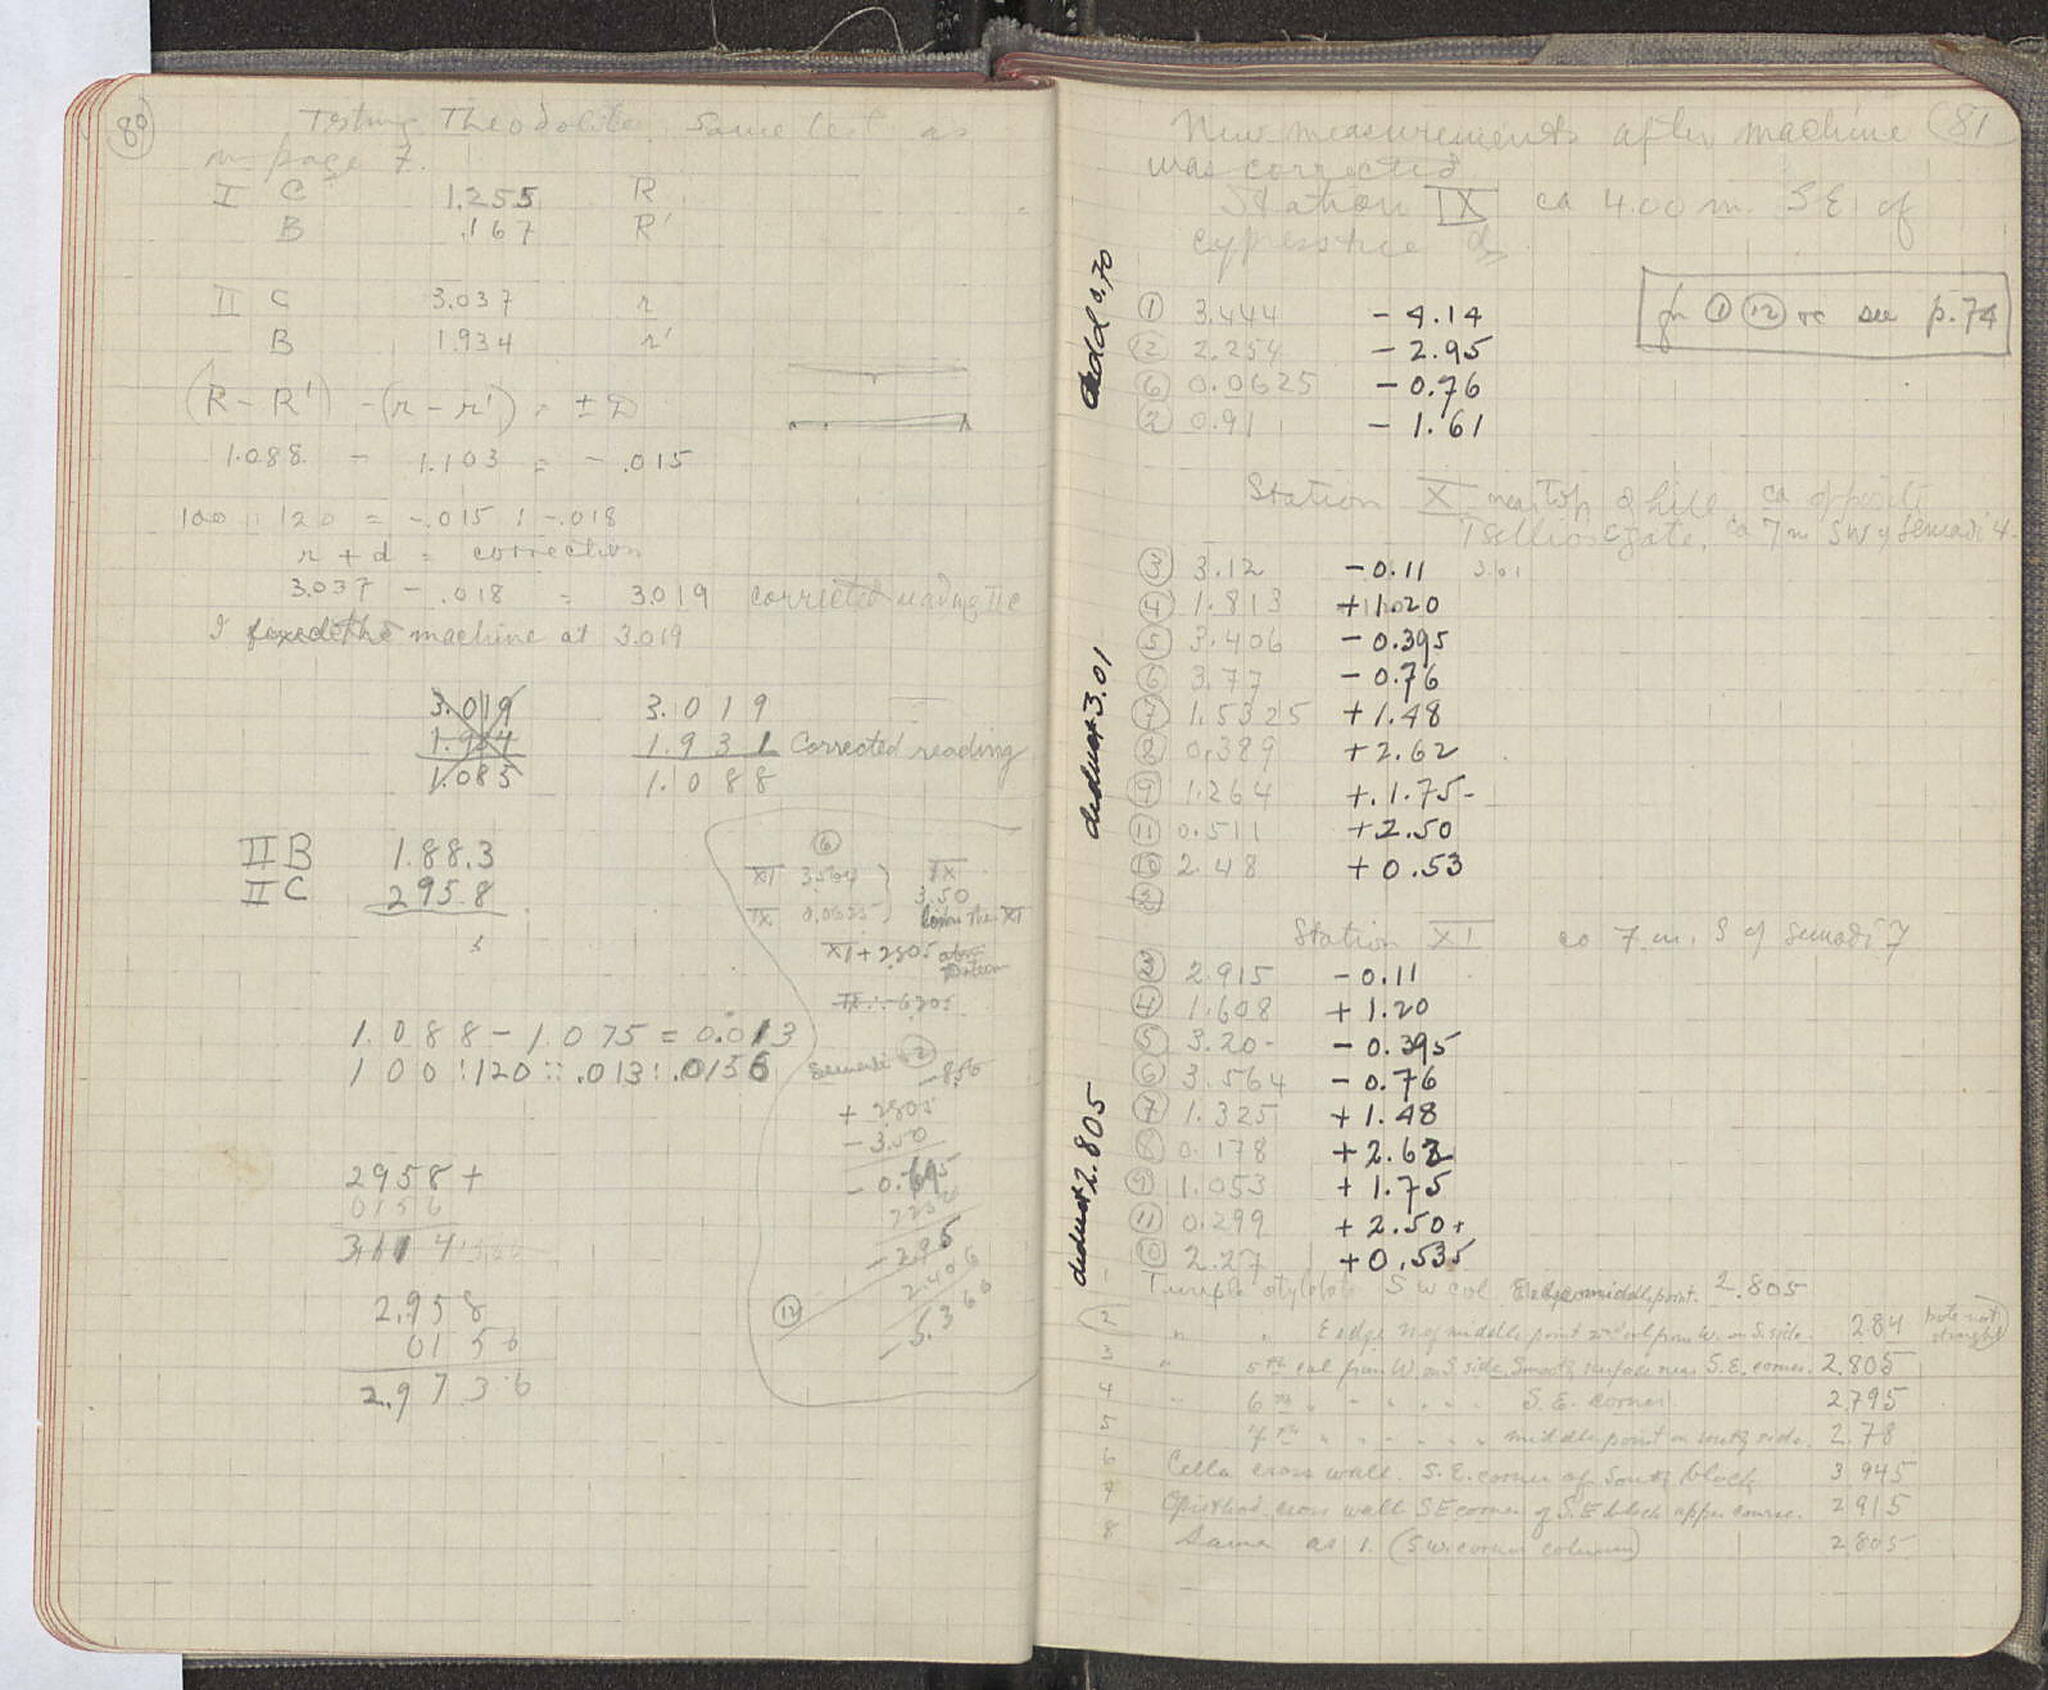 80
Testing Theodolite. Same test as
on page 7.
I C 1.255 R
B .167 R'
II C 3.037 r
B 1.934 r'
(R - R') - (r - r') = ± D
1.088 - 1.103 = - .015
100 : 120 = -.015 : -.018
r + d = correction
3.037 - .018 = 3.019 corrected reading II C
I fixed the machine at 3.019
3.019
1.934
1.085
3.019
1.931 Corrected reading
1.088
II B 1.88.3
II C 295.8
6
XI 3.564 } IX
IX 0.0625 } 3.50
below the XI
XI + 2805 above
datum
1.088 - 1.075 = 0.013
100 : 120 :: .013 : .0156
2
-.856
+ 2805
- 3.50
- 0.695
2256
- 2.95
2.406
12
- 5.360
2958 +
0156
3114
2.958
0156
2.9736
81
New measurements after machine
was corrected
Station IX ca 4.00 m. SE of
cypress tree
add 0.70
for 1 12 etc see p. 74
1 3.444 - 4.14
12 2.254 - 2.95
6 0.0625 - 0.76
2 0.91 - 1.61
Station X near top of hill, ca opposite
gate, ca 7 m SW of Semadi 4
deduct 3.01
3 3.12 - 0.11 3.01
4 1.813 + 1.20
5 3.406 - 0.395
6 3.77 - 0.76
7 1.5325 + 1.48
8 0.389 + 2.62
9 1.264 +.1.75-
11 0.511 +2.50
10 2.48 + 0.53
2
Station XI ca 7 m. S of Semadi 7
deduct 2.805
3 2.915 - 0.11
4 1.608 + 1.20
5 3.20- - 0.395
6 3.564 - 0.76
7 1.325 + 1.48
8 0.178 + 2.62
9 1.053 + 1.75
11 0.299 + 2.50+
10 2.27 +0.535
1 Temple stylobate S W col. Edge middle point. 2.805
2 " " E edge N of middle point 2nd col from W. on S. side. 284 note not straight
3 " 5th col from W. on S side. Smooth surface near S.E. corner. 2.805
4 " 6th " " " " " S.E. corner 2.795
5 7th " " " " " middle point on south side. 2.78
6 Cella cross wall. S.E. corner of South block 3.945
7 Opisthod. cross wall SE corner of S.E block upper course. 2.915
8 Same as 1. (S.W. corner column) 2.805